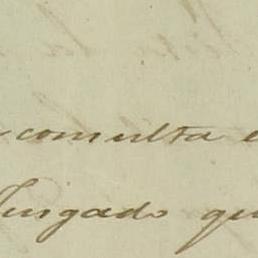 consulta
Jusgado qu